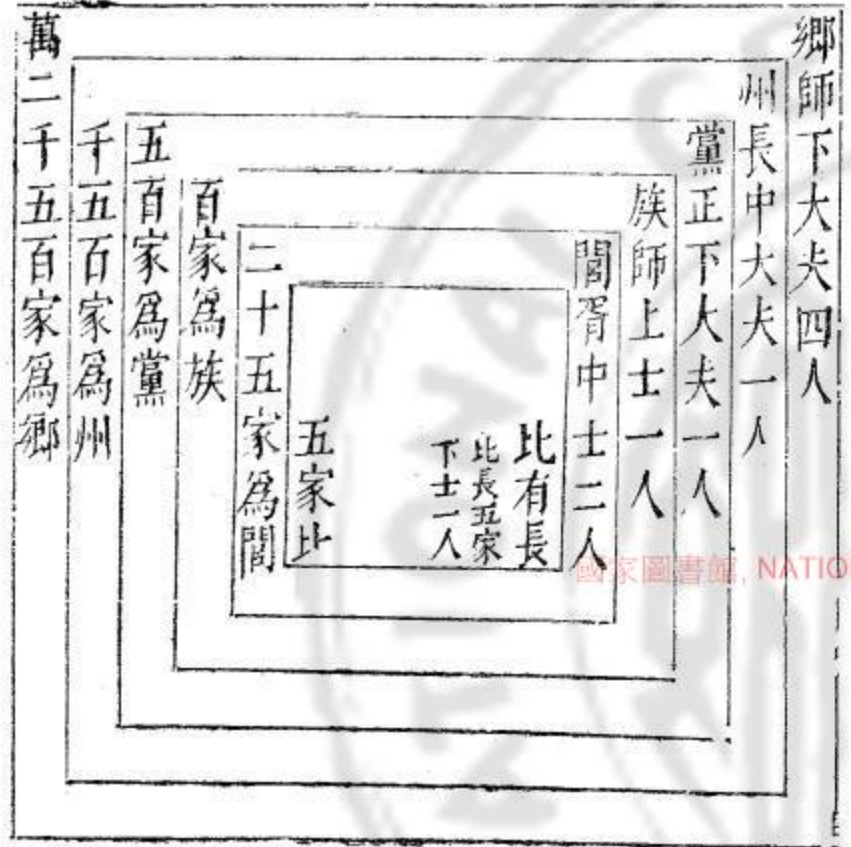 鄉師下大夫四人
州長中大夫一人
黨正下大夫一人
族師上士一人
閭胥中士二人
比有長
比長五家
下士一人
五家比
二十五家爲閭
百家爲族
五百家爲黨
千五百家爲州
萬二千五百家爲鄉
國家圖書館, NATIO